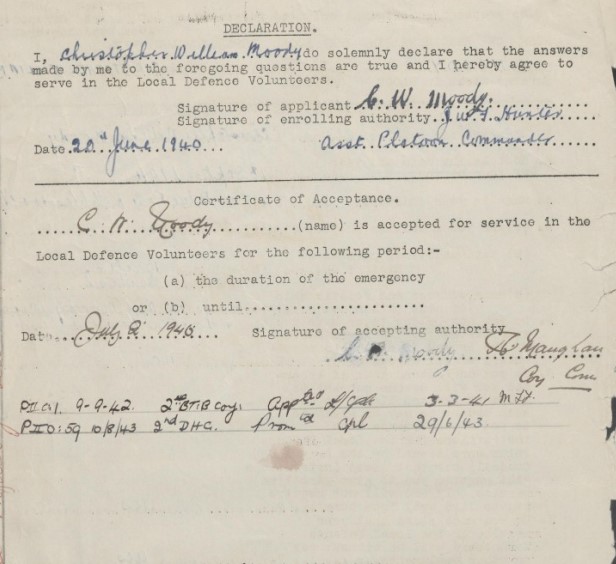 DECLARATION.
I, Christopher William Moody do solemnly declare that the answers
made by me to the foregoing questions are true and I hereby agree to
serve in the Local Defence Volunteers.
Signature of applicant C. W. Moody.
Signature of enrolling authority. Hunter
Date. 20th June 1940. Asst. Platoon Commander
Certificate of Acceptance.
C W Moody (name) is accepted for service in the
Local Defence Volunteers for the following period:-
(a) the duration of the emergency
or (b) until
Date July 2 1940 Signature of accepting authority
Moody
Coy Com
9-9-42. 2nd BT: B Coy: App L/Cpl 3-2-41
59 10/8/43 2nd D.H.G. Prom Cpl 29/6/43.